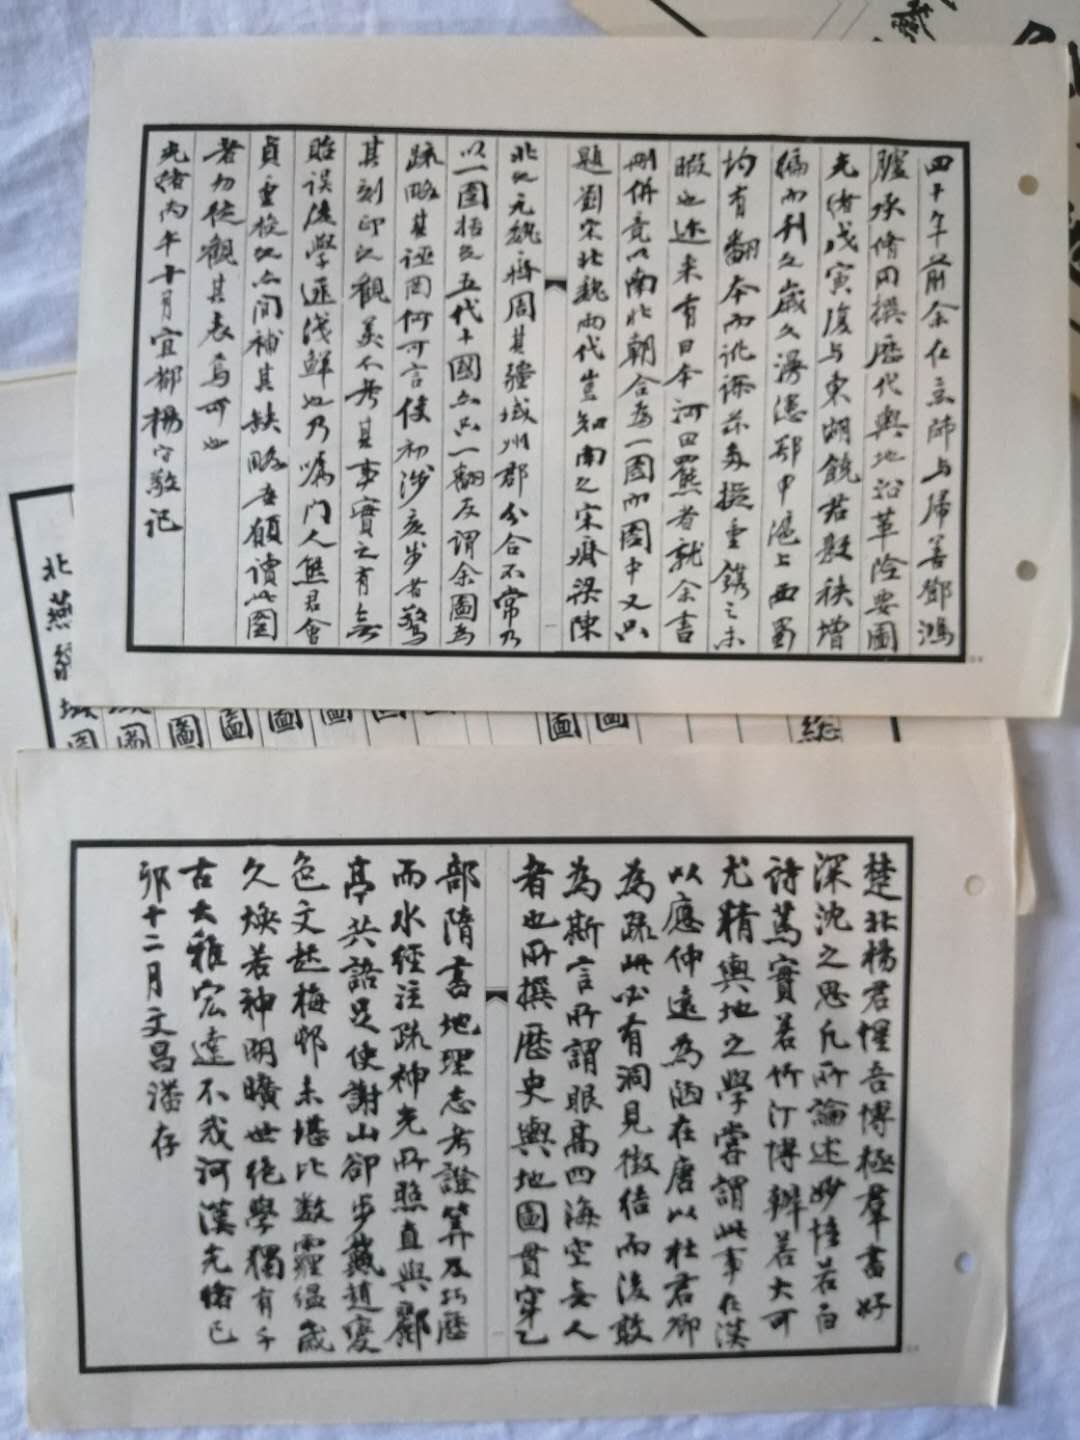 四十年前余在京師与歸善鄧鴻
臚承修同撰歷代輿地沿革險要圖
光緒戊寅復与東湖饒君敦秩增
編而刊之歲久漫漶鄂中滬上西蜀
均有翻本而訛謬茲多擬重鐫之未
暇也近来有日本河田羆者就余書
刪併竟以南北朝合為一圖而圖中又只
題劉宋北魏兩代豈知南之宋齊梁陳
北之元魏齊周其疆域州郡分合不常乃
以一圖括之五代十國亦只一翻反謂余圖為
疏略其誣罔何可言使初涉亥步者驚
其刻印之觀美不考其事實之有無
貽誤後學匪淺鮮也乃囑门人熊君會
貞重校之亦间補其缺略吾願讀此圖
者勿徒觀其表焉可也
光緒丙午十月宜都楊守敬记
北燕疆域圖
域圖
圖
圖
圖
圖
圖
圖
總
楚北楊君惺吾博極羣書好
深沈之思凡所論述妙悟若百
詩篤實若竹汀博辨若大可
尤精輿地之學嘗謂此事在漢
以應仲遠為陋在唐以杜君卿
為疏此必有洞見徵結而後敢
為斯言所謂眼高四海空無人
者也所撰歷史輿地圖貫穿乙
部隋書地理志考證算及巧歷
而水經注疏神光所照直與酈
亭共語足使謝山卻步戴趙變
色文起梅邨未堪比数霾縕歲
久煥若神明曠世絕學獨有千
古大雅宏達不我河漢光緒己
卯十二月文昌潘存